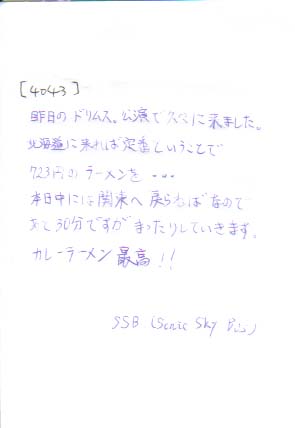 [4043]
昨日のドリムス。公演で久々に来ました。
北海道に来れば定番ということで
723円のラーメンを・・・
本日中には関東へ戻らねばなので
あと30分ですがまったりしていきます。
カレーラーメン最高!!
SSB (Sonic Sky